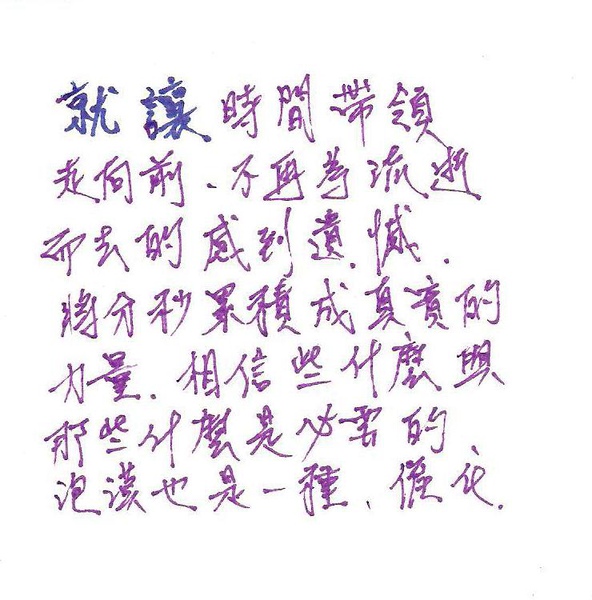 就讓時間帶領
走向前、不再為流逝
而去的感到遺憾.
將分秒累積成真實的
力量. 相信些什麼與
那些什麼是必要的.
沈澱也是一種、催化.